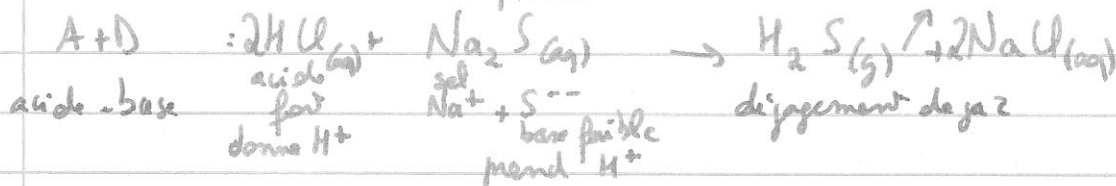 A + D : 2HCl(aq) + Na₂S(aq) → H₂S(g) ↗ + 2NaCl(aq)
acide-base acide fort donne H⁺ sel Na⁺ + S⁻⁻ base faible prend H⁺ dégagement de gaz